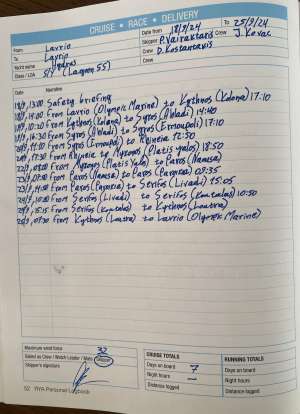 CRUISE • RACE • DELIVERY
From Lavrio Date from 18/9/24 To 25/9/24
To Lavrio Skipper P. Vairaktaris Crew J. Kovac
Yacht name Andros Crew D. Kostantakis Crew
Class / LOA S/Y (Lagoon 55)
Date Narrative
18/9, 13:00 Safety briefing
18/9, 14:00 From Lavrio (Olympic Marine) to Kythnos (Kolona) 17:10
19/9, 10:20 From Kythnos (Kolona) to Syros (Abladi) 14:40
19/9, 16:30 From Syros (Abladi) to Syros (Ermoupoli) 17:10
20/9, 11:00 From Syros (Ermoupoli) to 12:50
21/9, 17:30 From to Mykonos (Platis yalos) 18:50
22/9, 08:00 From Mykonos (Platis Yalo) to Paros (Naousa)
23/9, 07:00 From Paros (Naousa) to Paros 09:35
23/9, 11:00 From Paros to Serifos (Livadi) 15:05
24/9, 10:20 From Serifos (Livadi) to Serifos (Koutalas) 10:50
24/9, 15:15 From Serifos (Koutalas) to Kythnos (Loutra)
25/9, 07:30 From Kythnos (Loutra) to Lavrio (Olympic Marine)
Maximum wind force 32
Sailed as Crew / Watch Leader / Mate / Skipper
Skipper's signature
CRUISE TOTALS RUNNING TOTALS
Days on board 7 Days on board
Night hours — Night hours
Distance logged Distance logged
52 RYA Personal Logbook